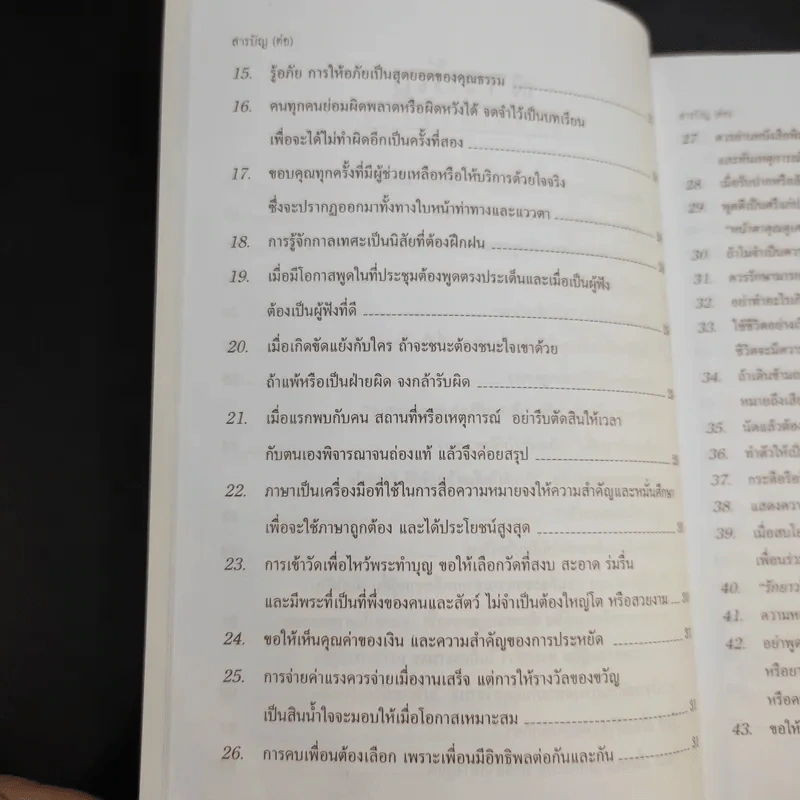 สารบัญ (ต่อ)
15. รู้อภัย การให้อภัยเป็นสุดยอดของคุณธรรม
16. คนทุกคนย่อมผิดพลาดหรือผิดหวังได้ จดจำไว้เป็นบทเรียน
เพื่อจะได้ไม่ทำผิดอีกเป็นครั้งที่สอง
17. ขอบคุณทุกครั้งที่มีผู้ช่วยเหลือหรือให้บริการด้วยใจจริง
ซึ่งจะปรากฏออกมาทั้งทางใบหน้าท่าทางและแววตา
18. การรู้จักกาลเทศะเป็นนิสัยที่ต้องฝึกฝน
19. เมื่อมีโอกาสพูดในที่ประชุมต้องพูดตรงประเด็นและเมื่อเป็นผู้ฟัง
ต้องเป็นผู้ฟังที่ดี
20. เมื่อเกิดขัดแย้งกับใคร ถ้าจะชนะต้องชนะใจเขาด้วย
ถ้าแพ้หรือเป็นฝ่ายผิด จงกล้ารับผิด
21. เมื่อแรกพบกับคน สถานที่หรือเหตุการณ์ อย่ารีบตัดสินให้เวลา
กับตนเองพิจารณาจนถ่องแท้ แล้วจึงค่อยสรุป
22. ภาษาเป็นเครื่องมือที่ใช้ในการสื่อความหมายจงให้ความสำคัญและหมั่นศึกษา
เพื่อจะใช้ภาษาถูกต้อง และได้ประโยชน์สูงสุด
23. การเข้าวัดเพื่อไหว้พระทำบุญ ขอให้เลือกวัดที่สงบ สะอาด ร่มรื่น
และมีพระที่เป็นที่พึ่งของคนและสัตว์ ไม่จำเป็นต้องใหญ่โต หรือสวยงาม
24. ขอให้เห็นคุณค่าของเงิน และความสำคัญของการประหยัด
25. การจ่ายค่าแรงควรจ่ายเมื่องานเสร็จ แต่การให้รางวัลของขวัญ
เป็นสินน้ำใจจะมอบให้เมื่อโอกาสเหมาะสม
26. การคบเพื่อนต้องเลือก เพราะเพื่อนมีอิทธิพลต่อกันและกัน
สารบัญ (ต่อ)
27
28. เมื่อรับปากหรือ
29.
30.
31.
32. อย่าทำอะไร
33. ใช้ชีวิตอย่าง
ชีวิตจะมีความ
34. ถ้าเดินข้าม
หมายถึง
35. นัดแล้วต้อง
36. ทำตัวให้
37.
38. แสดงความ
39.
เพื่อนร่วม
40. "รักยาว
41.
42. อย่าพูด
หรือ
หรือ
43. ขอให้